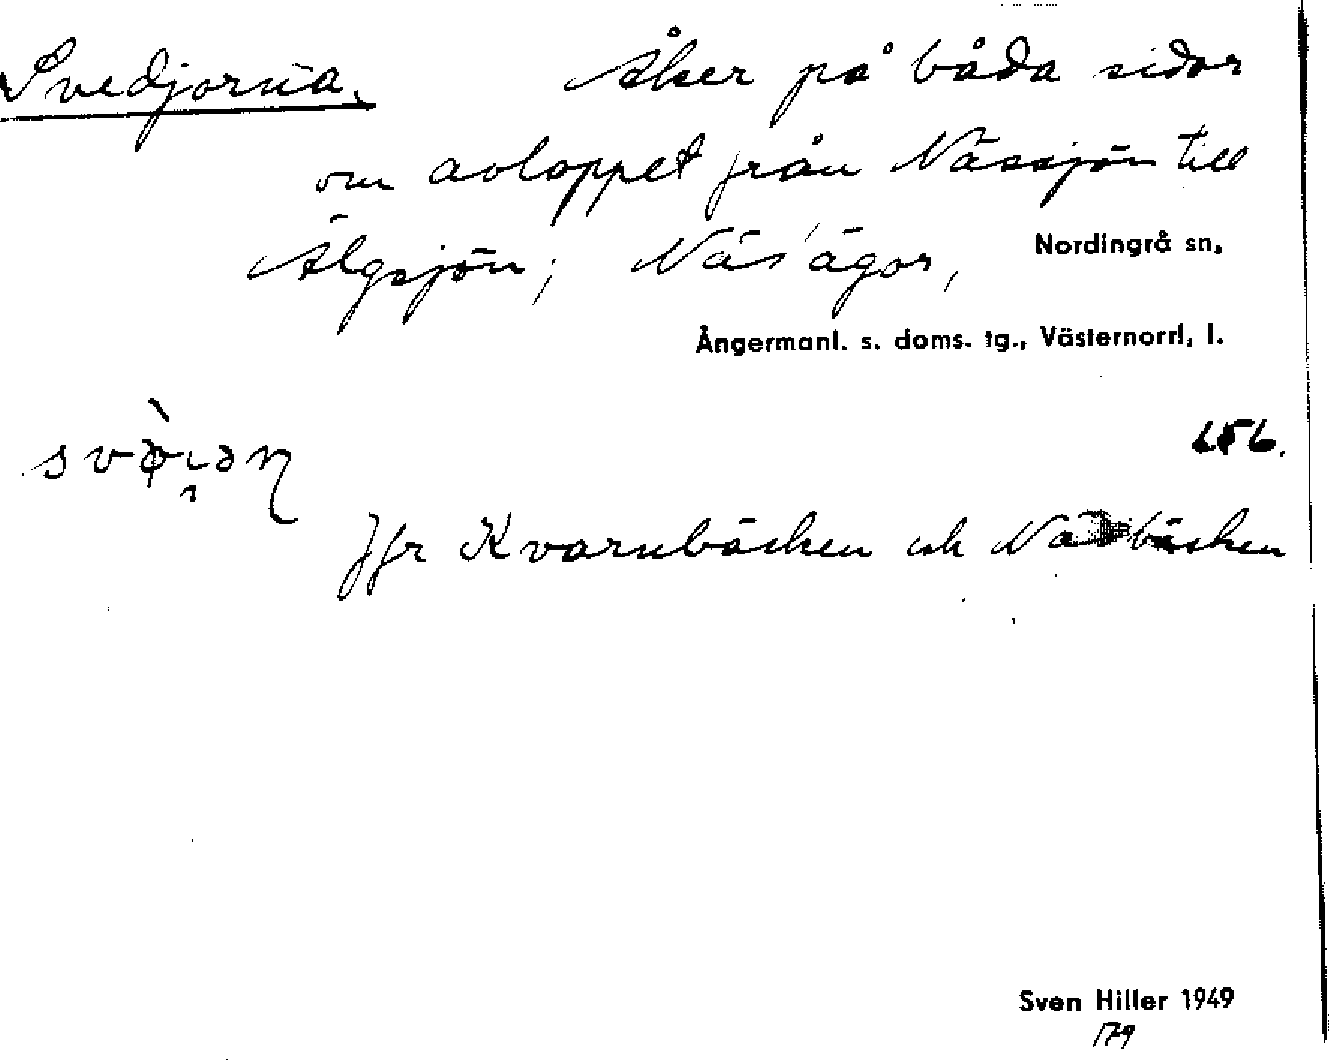 Svedjorna. Åker på båda sidor
om avloppet från Nässjön till
Älgsjön; Näs' ägor, Nordingrå sn,
Ångermanl. s. doms. tg., Västernorrl, l.
656.
Jfr Kvarnbäcken och Näsbäcken
Sven Hiller 1949
179